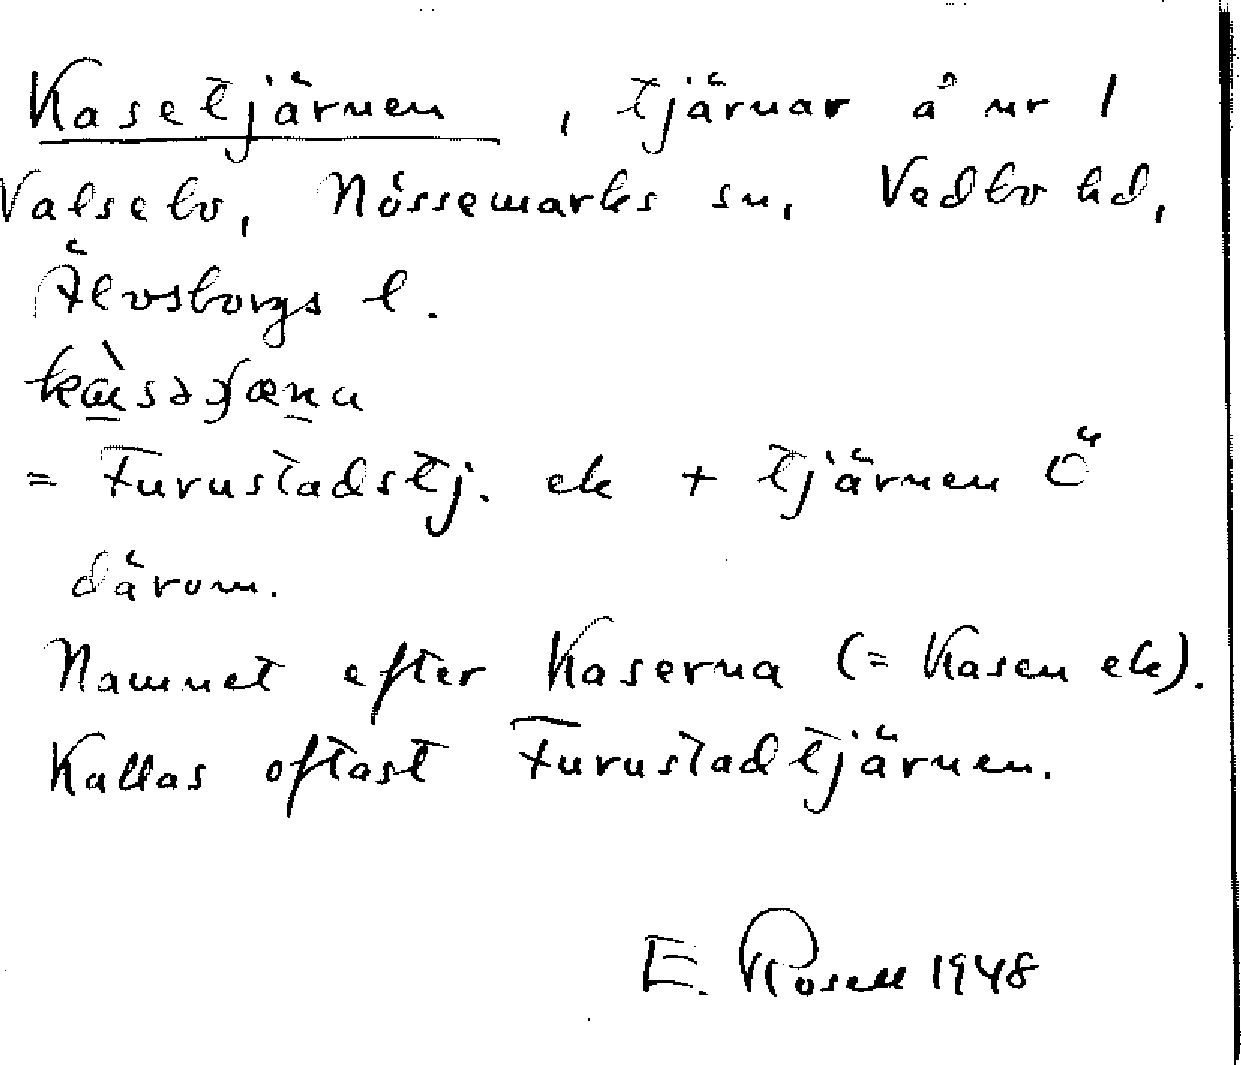 Kasetjärnen, tjärnar å nr 1
Valsebo, Nössemarks sn, Vedbo hd,
Älvsborgs l.
= Furustadstj. ek + tjärnen Ö
därom.
Namnet efter Kaserna (= Kasen ek).
Kallas oftast Furustadtjärnen.
E. Rosell 1948